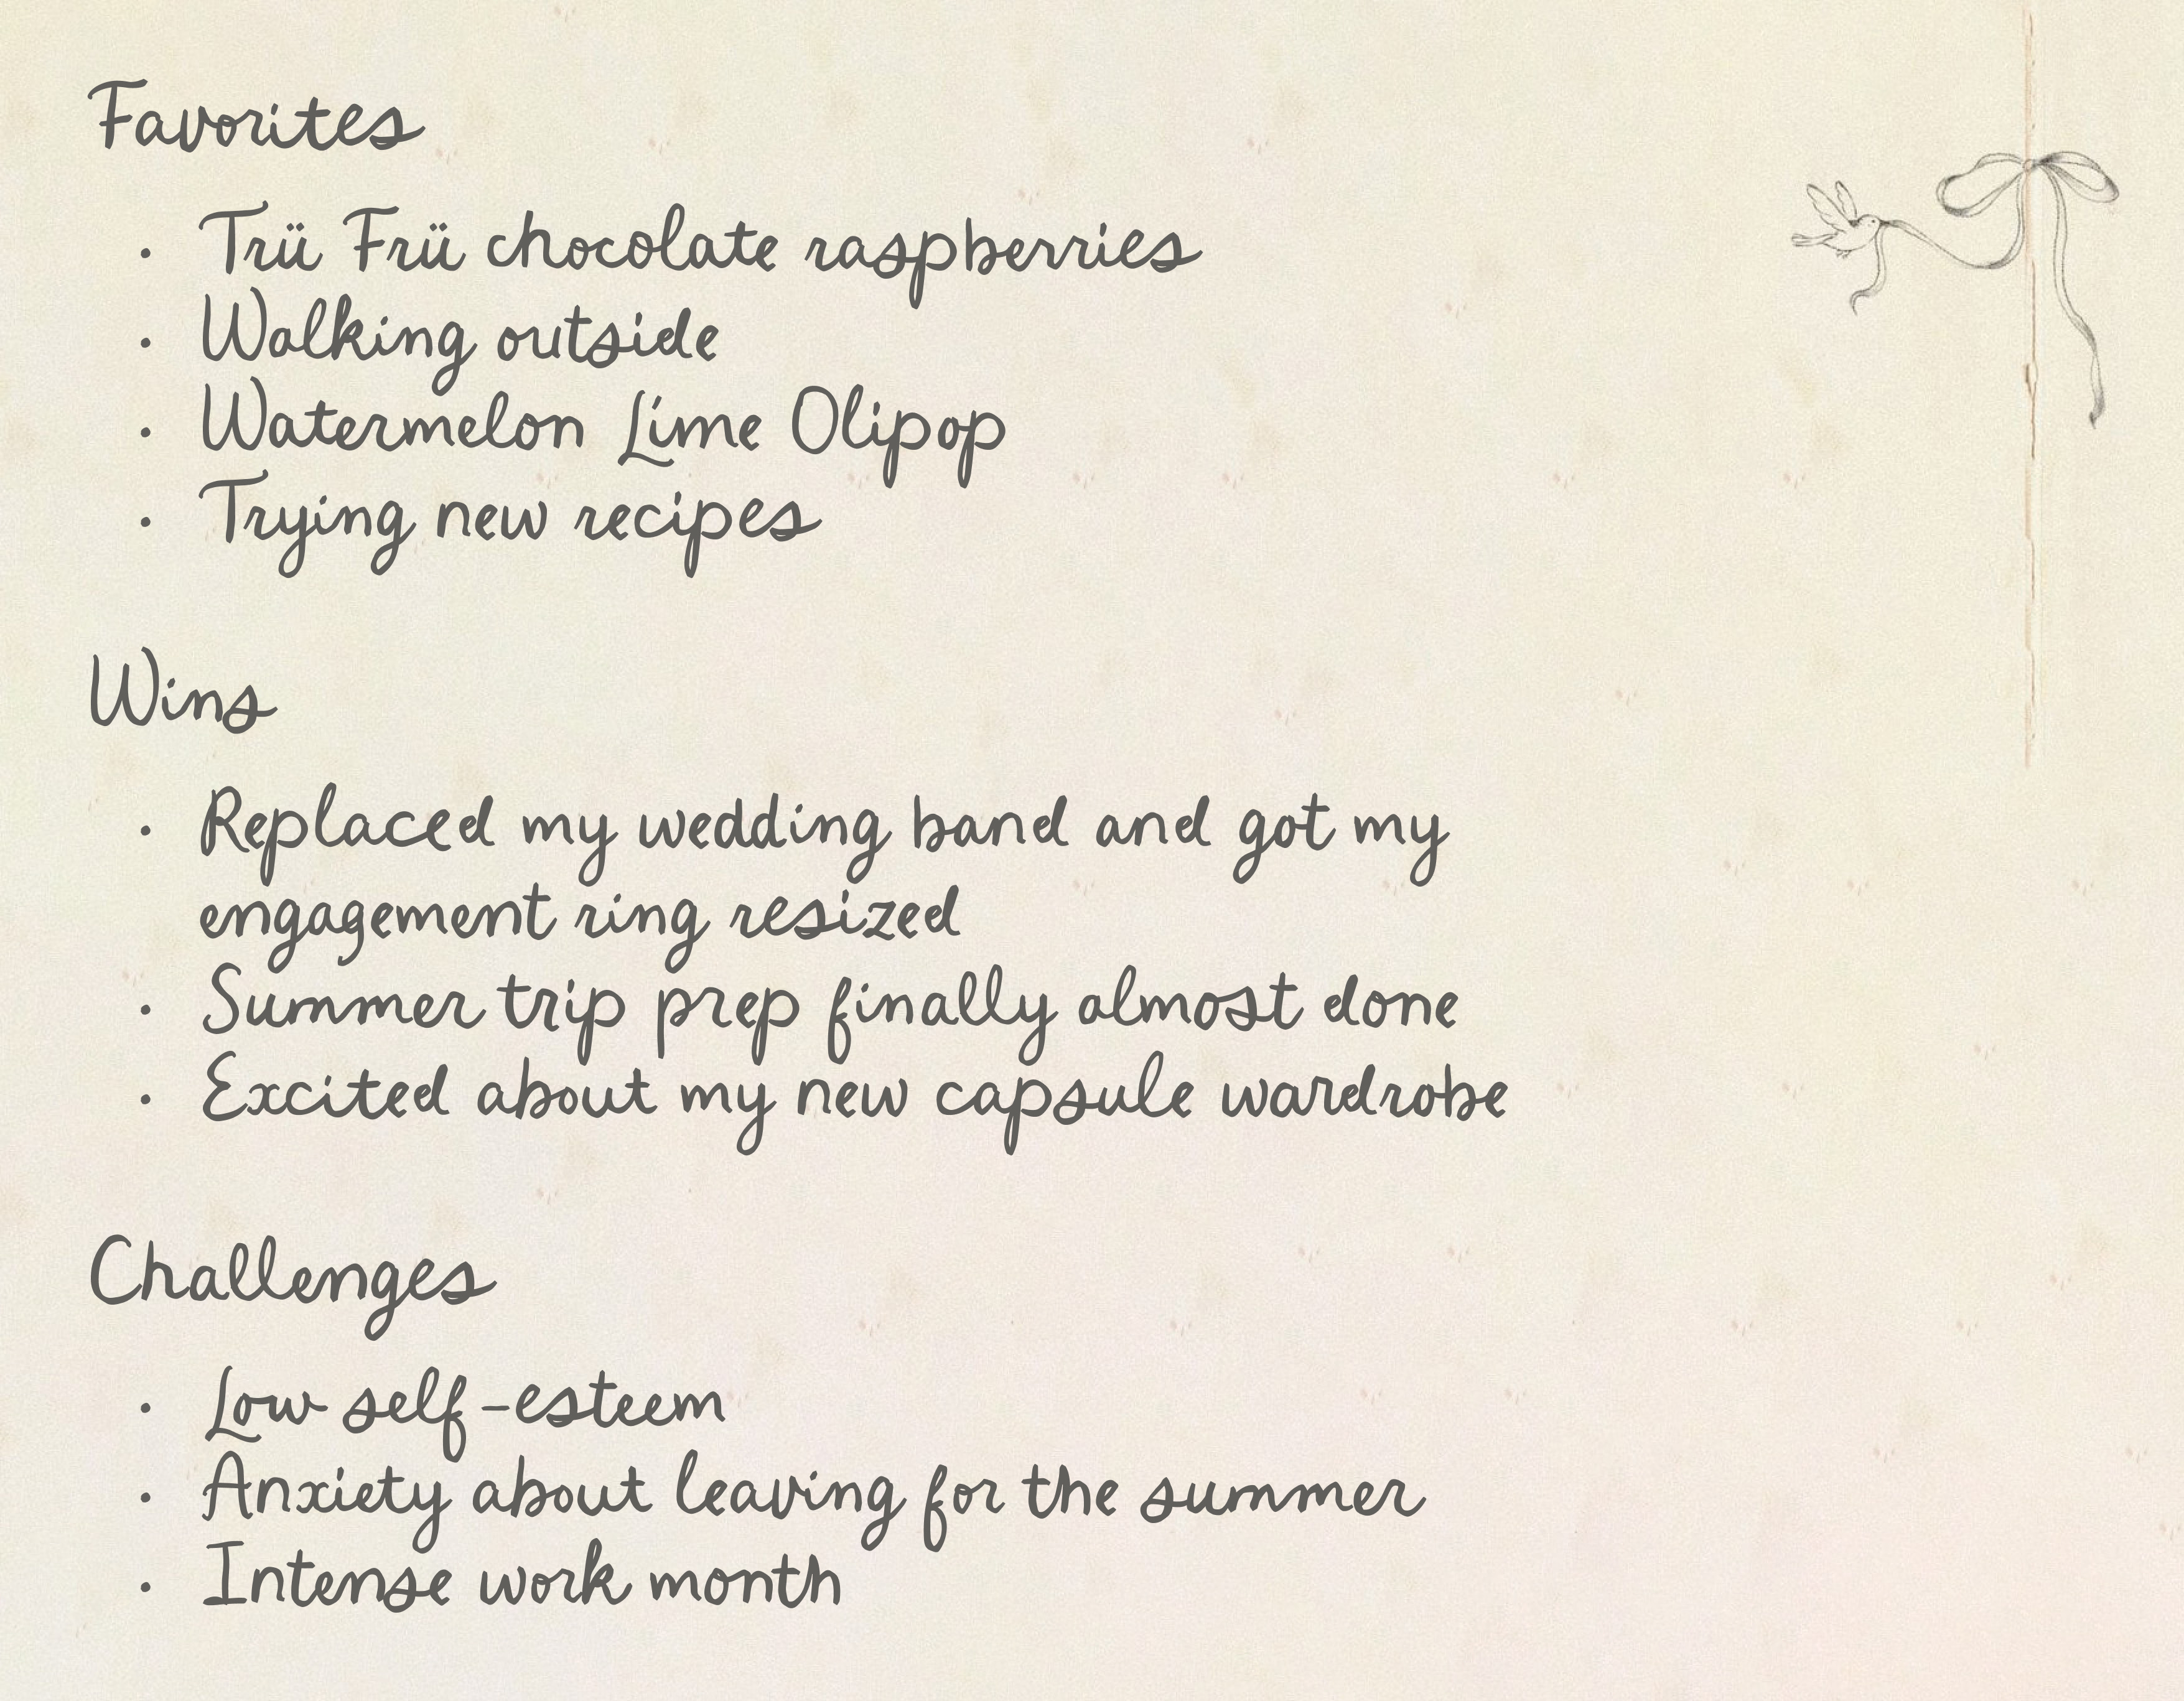 Favorites
· Trü Frü chocolate raspberries
· Walking outside
· Watermelon Lime Olipop
· Trying new recipes
Wins
· Replaced my wedding band and got my
engagement ring resized
· Summer trip prep finally almost done
· Excited about my new capsule wardrobe
Challenges
· Low self-esteem
· Anxiety about leaving for the summer
· Intense work month